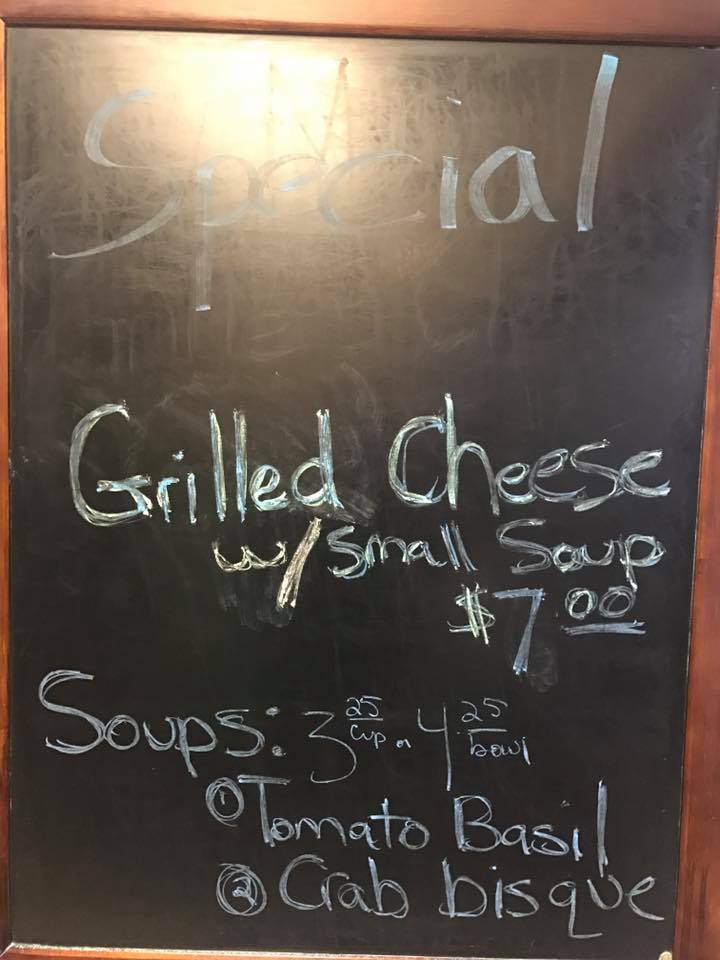 Special
Grilled Cheese
w/ Small Soup
$7.00
Soups: 3 25 cup or 4 25 bowl
① Tomato Basil
② Crab bisque